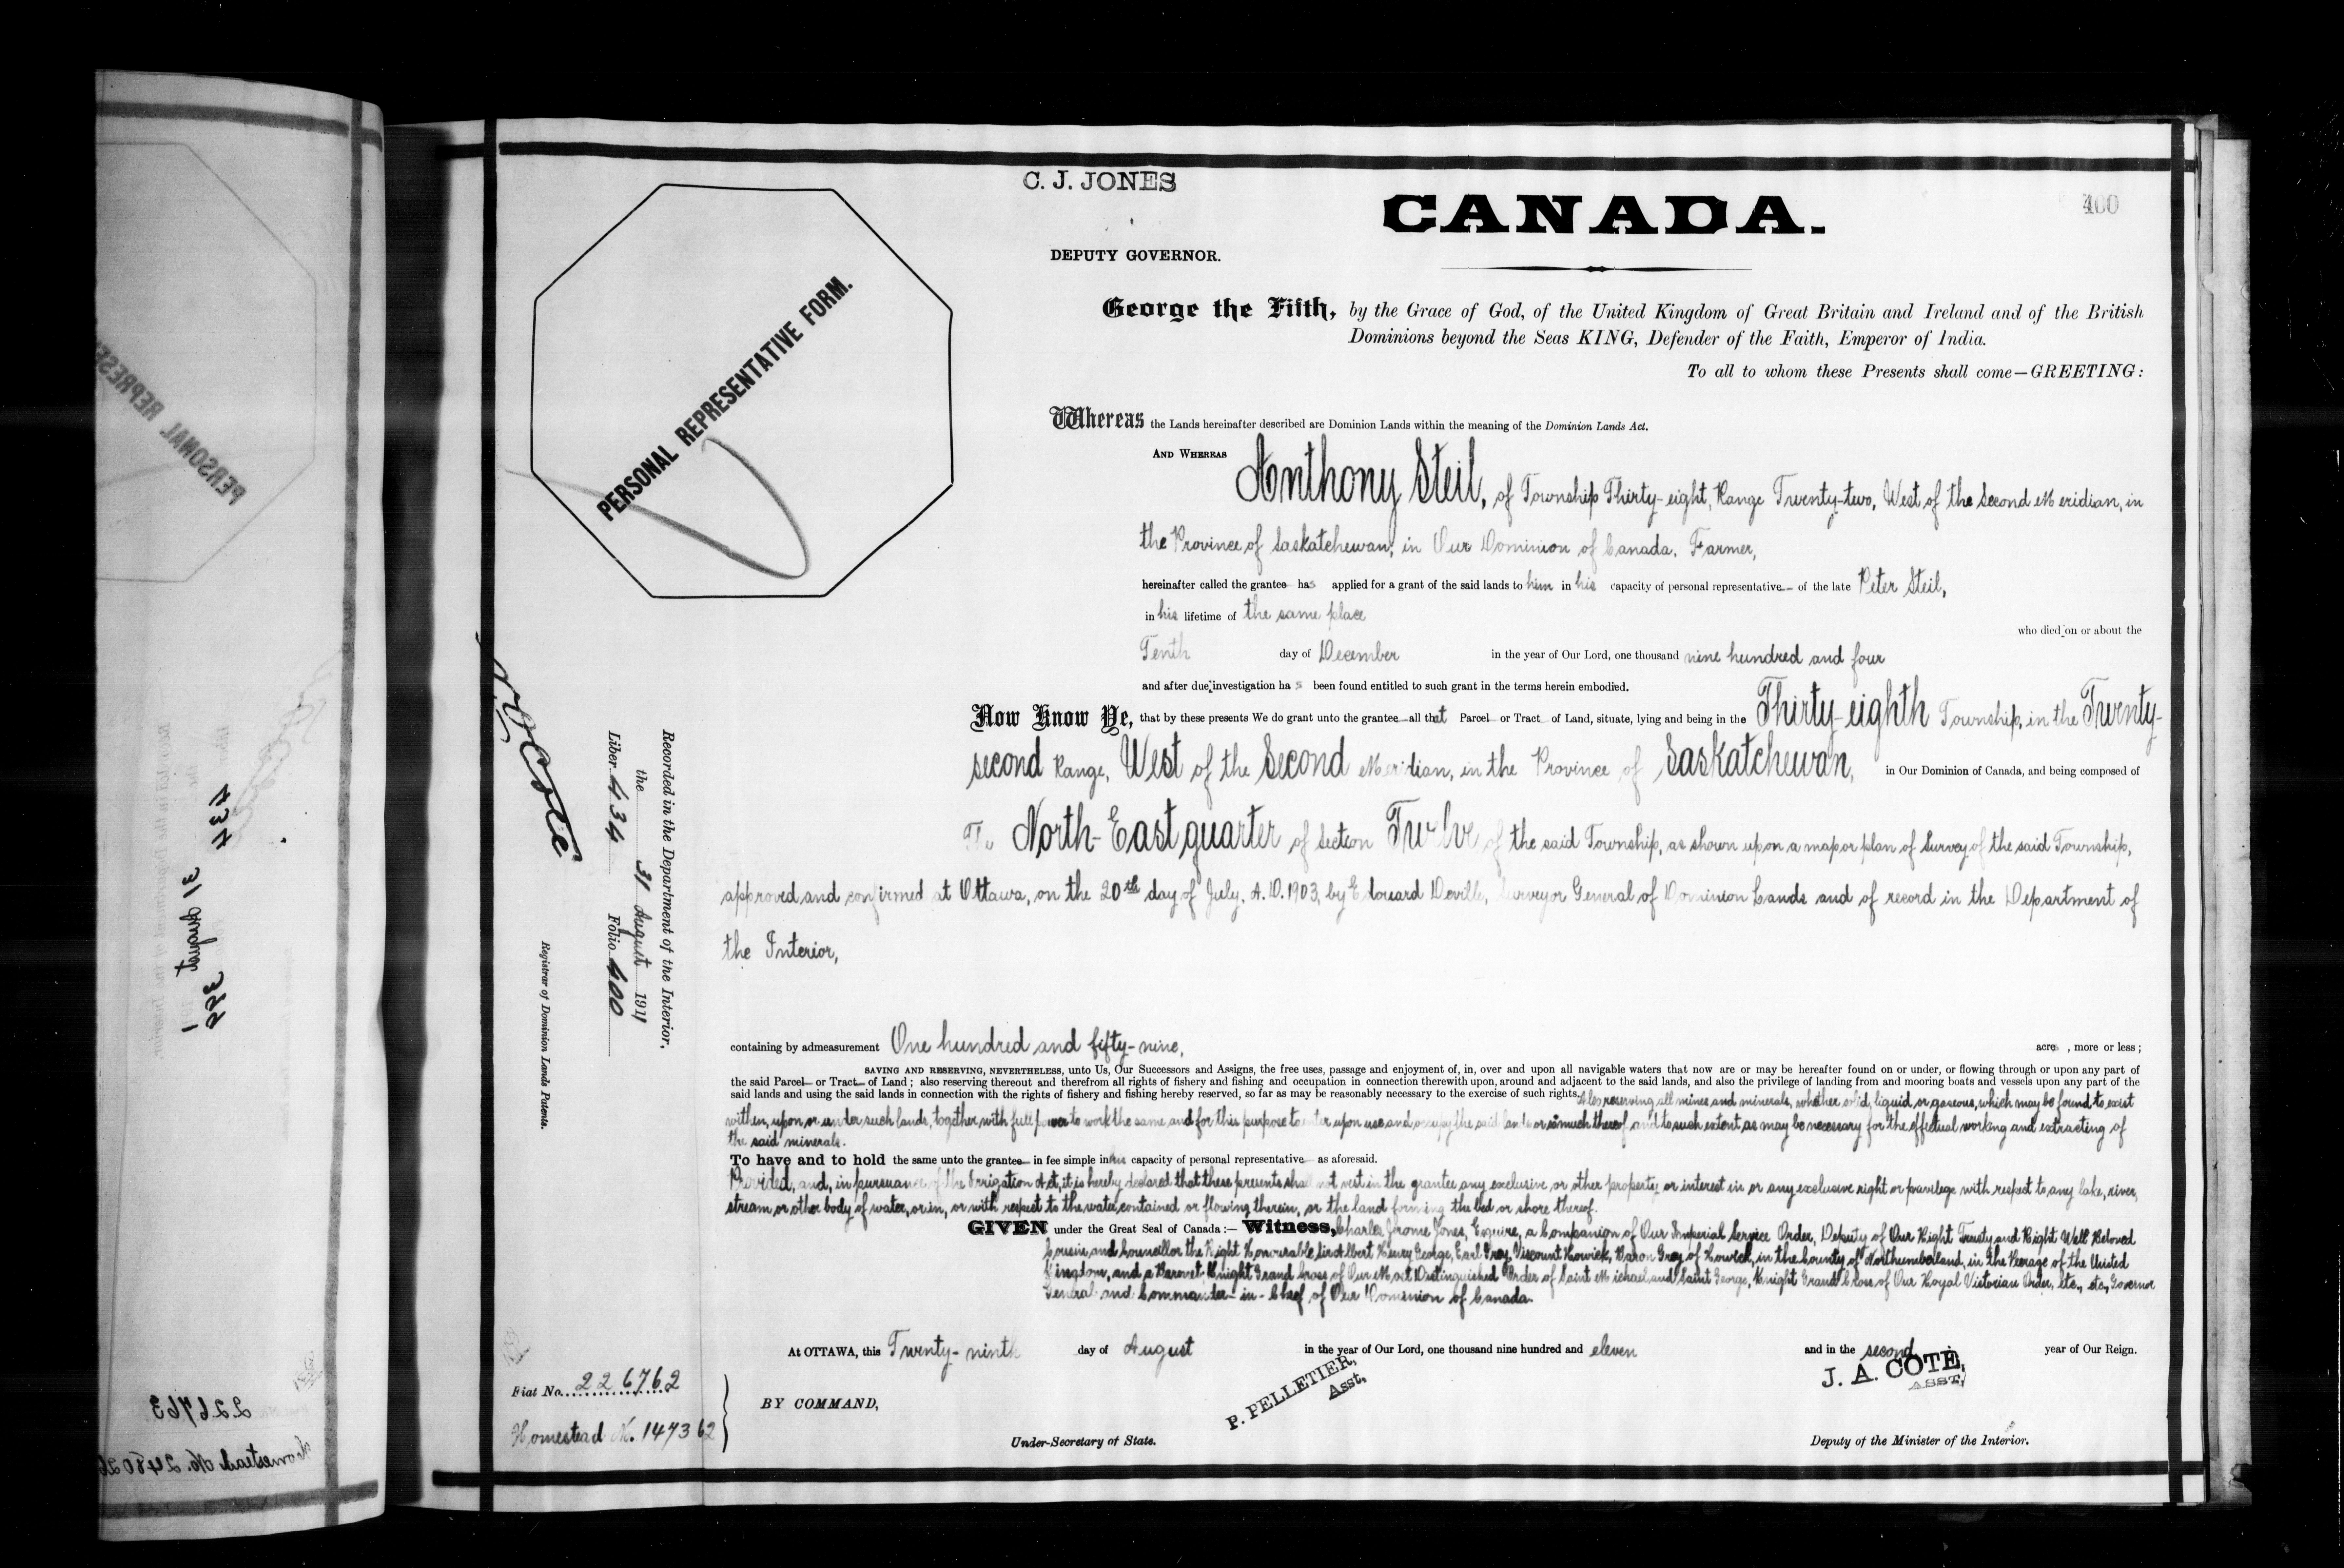 C. J. JONES
CANADA.
400
DEPUTY GOVERNOR.
George the Fifth, by the Grace of God, of the United Kingdom of Great Britain and Ireland and of the British
Dominions beyond the Seas KING, Defender of the Faith, Emperor of India.
To all to whom these Presents shall come—GREETING:
PERSONAL REPRESENTATIVE FORM.
Whereas the Lands hereinafter described are Dominion Lands within the meaning of the Dominion Lands Act.
AND WHEREAS Anthony Steil, of Township Thirty-eight, Range Twenty-two, West of the Second Meridian, in
the Province of Saskatchewan, in Our Dominion of Canada, Farmer,
hereinafter called the grantee has applied for a grant of the said lands to him in his capacity of personal representative of the late Peter Steil,
in his lifetime of the same place
who died on or about the
Tenth day of December in the year of Our Lord, one thousand nine hundred and four
and after due investigation has been found entitled to such grant in the terms herein embodied.
Now Know Ye, that by these presents We do grant unto the grantee all that Parcel or Tract of Land, situate, lying and being in the Thirty-eighth Township, in the Twenty-
second Range, West of the Second Meridian, in the Province of Saskatchewan, in Our Dominion of Canada, and being composed of
The North-East quarter of Section Twelve of the said Township, as shown upon a map or plan of Survey of the said Township,
approved and confirmed at Ottawa, on the 20th day of July, A.D. 1903, by Edouard Deville, Surveyor General of Dominion Lands and of record in the Department of
the Interior,
containing by admeasurement One hundred and fifty-nine, acres, more or less;
SAVING AND RESERVING, NEVERTHELESS, unto Us, Our Successors and Assigns, the free uses, passage and enjoyment of, in, over and upon all navigable waters that now are or may be hereafter found on or under, or flowing through or upon any part of
the said Parcel or Tract of Land; also reserving thereout and therefrom all rights of fishery and fishing and occupation in connection therewith upon, around and adjacent to the said lands, and also the privilege of landing from and mooring boats and vessels upon any part of the
said lands and using the said lands in connection with the rights of fishery and fishing hereby reserved, so far as may be reasonably necessary to the exercise of such rights. Also reserving all mines and minerals, whether solid, liquid or gaseous, which may be found to exist
within, upon or under such lands, together with full power to work the same and for this purpose to enter upon use and occupy the said lands or so much thereof and to such extent as may be necessary for the effectual working and extracting of
the said minerals.
To have and to hold the same unto the grantee in fee simple in his capacity of personal representative as aforesaid.
Provided, and, in pursuance of the Irrigation Act, it is hereby declared that these presents shall not vest in the grantee any exclusive or other property or interest in or any exclusive right or privilege with respect to any lake, river,
stream or other body of water, or in, or with respect to the water contained or flowing therein, or the land forming the bed or shore thereof.
GIVEN under the Great Seal of Canada:— Witness, Charles Jerome Jones, Esquire, a Companion of Our Imperial Service Order, Deputy of Our Right Trusty and Right Well Beloved
Cousin and Councillor the Right Honourable Sir Albert Henry George, Earl Grey, Viscount Howick, Baron Grey of Howick, in the County of Northumberland, in the Peerage of the United
Kingdom, and a Baronet; Knight Grand Cross of Our Most Distinguished Order of Saint Michael and Saint George, Knight Grand Cross of Our Royal Victorian Order, etc., etc., Governor
General and Commander-in-Chief of Our Dominion of Canada.
At OTTAWA, this Twenty-ninth day of August in the year of Our Lord, one thousand nine hundred and eleven and in the second year of Our Reign.
BY COMMAND,
P. PELLETIER,
Asst.
J. A. COTÉ,
ASST.
Under-Secretary of State.
Deputy of the Minister of the Interior.
Recorded in the Department of the Interior,
the 31 August 1911
Liber 434 Folio 400
Registrar of Dominion Lands Patents.
Fiat No. 226762
Homestead N. 147362
434
31 August
399
226763
Homestead No.
PERSONAL REPRESE